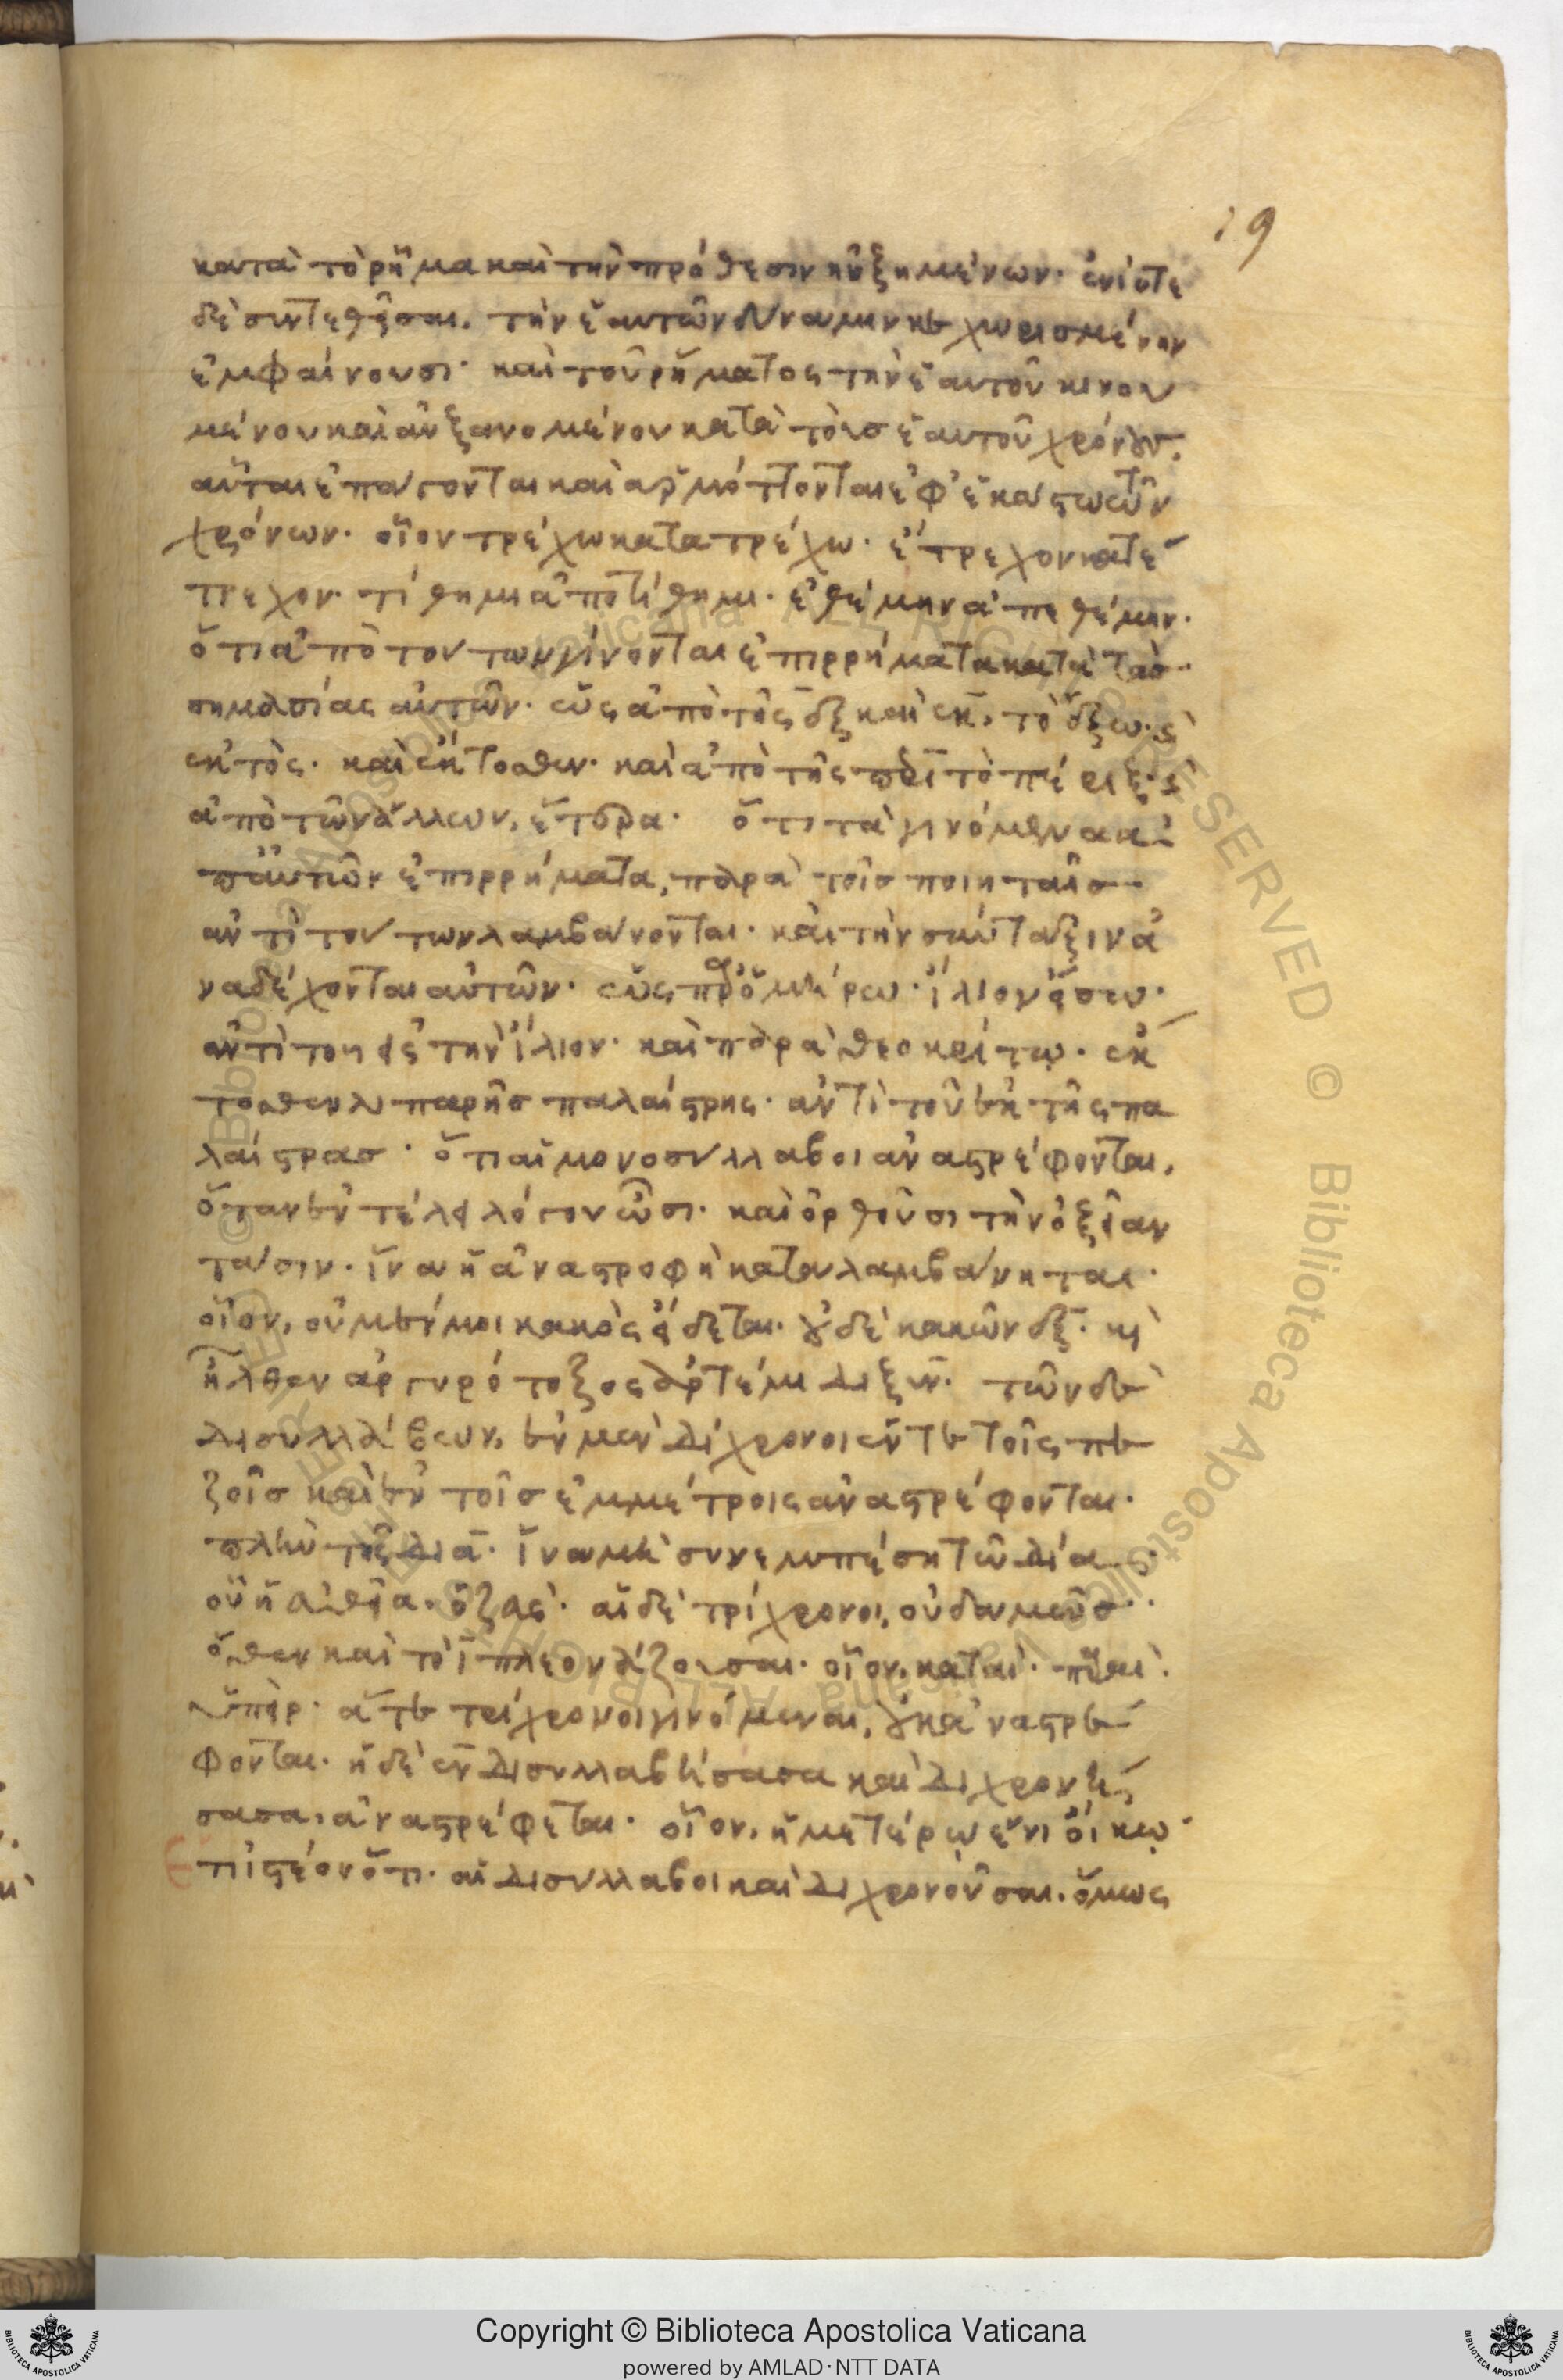 19
κατὰ τὸ ρῆμα καὶ τὴν πρόθεσιν ηὐξημένων· ἐνίοτε
δὲ συντεθεῖσαι, τὴν ἑαυτῶν δύναμιν κεχωρισμένην
ἐμφαίνουσι· καὶ τοῦ ρήματος τὴν ἑαυτοῦ κινου
μένου καὶ αὐξανομένου κατὰ τοὺς ἑαυτοῦ χρόνους,
αὗται ἐπάγονται καὶ ἁρμόττονται ἐφ' ἑκάστω τῶν
χρόνων· οἷον τρέχω κατατρέχω· ἔτρεχον κατέ
τρεχον· τίθημι ἀποτίθημι· ἐθέμην ἀπεθέμην·
ὅτι ἀπὸ τούτων γίνονται ἐπιρρήματα κατὰ τὰς
σημασίας αὐτῶν· ὡς ἀπὸ τῆς ἐξ καὶ ἐκ, τὸ ἔξω· καὶ
ἐκτὸς· καὶ ἔκτοθεν· καὶ ἀπὸ τῆς περὶ τὸ πέριξ· καὶ
ἀπὸ τῶν ἄλλων, ἕτερα· ὅτι τὰ γινόμενα ἀ
π' αὐτῶν ἐπιρρήματα, παρὰ τοῖς ποιηταῖς
ἀντὶ τούτων λαμβάνονται· καὶ τὴν σύνταξιν ἀ
ναδέχονται αὐτῶν· ὡς παρ' ὁμήρω· ἴλιον εἴσω·
ἀντὶ τοῦ εἰς τὴν ἴλιον· καὶ παρὰ θεοκρίτῳ· ἔκ
τοθεν λιπαρῆς παλαίστρης· ἀντὶ τοῦ ἐκ τῆς πα
λαίστρας· ὅτι αἱ μονοσύλλαβοι ἀναστρέφονται,
ὅταν ἐν τέλει λόγου ὦσι· καὶ ὀρθοῦσι τὴν ὀξεῖαν
τάσιν· ἵνα ἡ ἀναστροφὴ καταλαμβάνηται·
οἷον, οὐ μέν μοι κακὸς εἴδεται· οὐδὲ κακῶν ἐξ· καὶ
ἦλθεν ἀργυρότοξος ἀρτέμιδι ξύν· τῶν δὲ
δισυλλάβων, αἱ μὲν δίχρονοι ἔν τε τοῖς πε
ζοῖς καὶ ἐν τοῖς ἐμμέτροις ἀναστρέφονται·
πλὴν τῆς διὰ· ἵνα μὴ συνεμπέση τῶ δία
οὗ ἡ εὐθεῖα, ὁ ζεύς· αἱ δὲ τρίχρονοι, οὐδαμῶς·
ὅθεν καὶ τὸ ῑ πλεονάζουσαι· οἷον, καταὶ· παραὶ·
ὑπείρ· ἅτε τρίχρονοι γινόμεναι, οὐκ ἀναστρέ
φονται· ἡ δὲ ἐν δισυλλαβήσασα καὶ διχρονή
σασα, ἀναστρέφεται· οἷον, ἡμετέρῳ ἔνι οἴκῳ·
Ἔτι ἰστέον ὅτι αἱ δισύλλαβοι καὶ διχρονοῦσαι, ὅμως
Copyright © Biblioteca Apostolica Vaticana
powered by AMLAD·NTT DATA